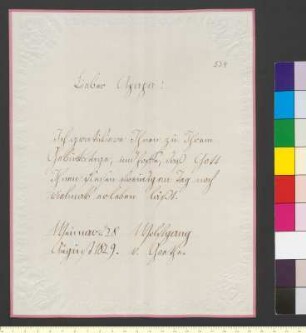 534
Lieber Apapa!
Ich gratulire Ihnen zu Ihrem
Geburtstage, und hoffe, das Gott
Ihnen diesen freudigen Tag noch
vielmals erleben läßt.
Weimar 28 Wolfgang
August 1829. v. Goethe